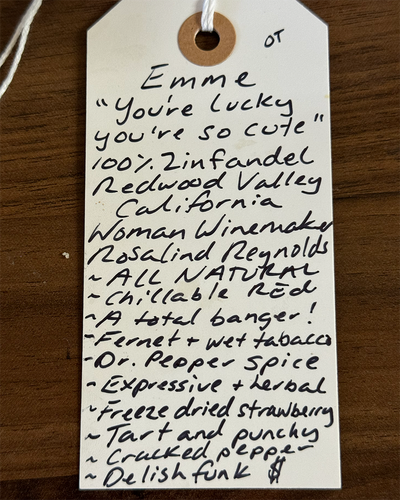 OT
Emme
"You're lucky
you're so cute"
100% Zinfandel
Redwood Valley
California
Woman Winemaker
Rosalind Reynolds
~ ALL NATURAL
~ Chillable REd
~ A total banger!
~ Fernet + wet tabacco
~ Dr. Pepper spice
~ Expressive + herbal
~ Freeze dried strawberry
~ Tart and punchy
~ Cracked pepper
~ Delish funk $